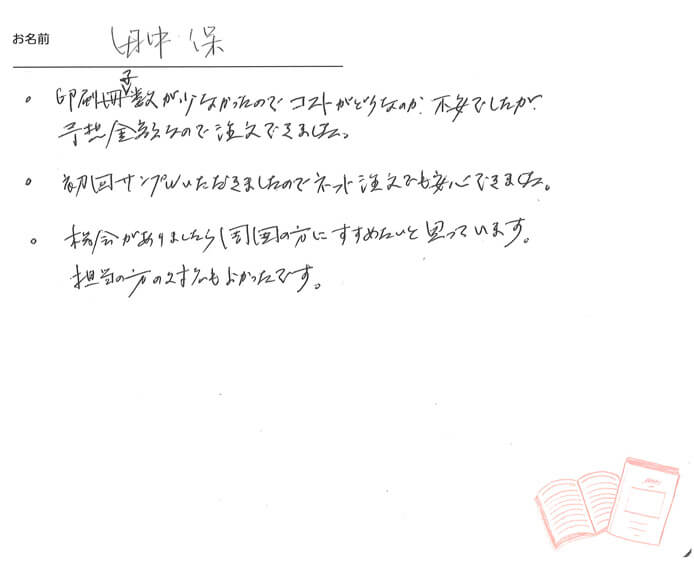 お名前 田中 保
。印刷冊子数が少なかったのでコストがどうなのか、不安でしたが、
予想金額なので注文できました。
。初回サンプルいただきましたのでネット注文でも安心できました。
。機会がありましたら周囲の方にすすめたいと思っています。
担当の方の対応もよかったです。